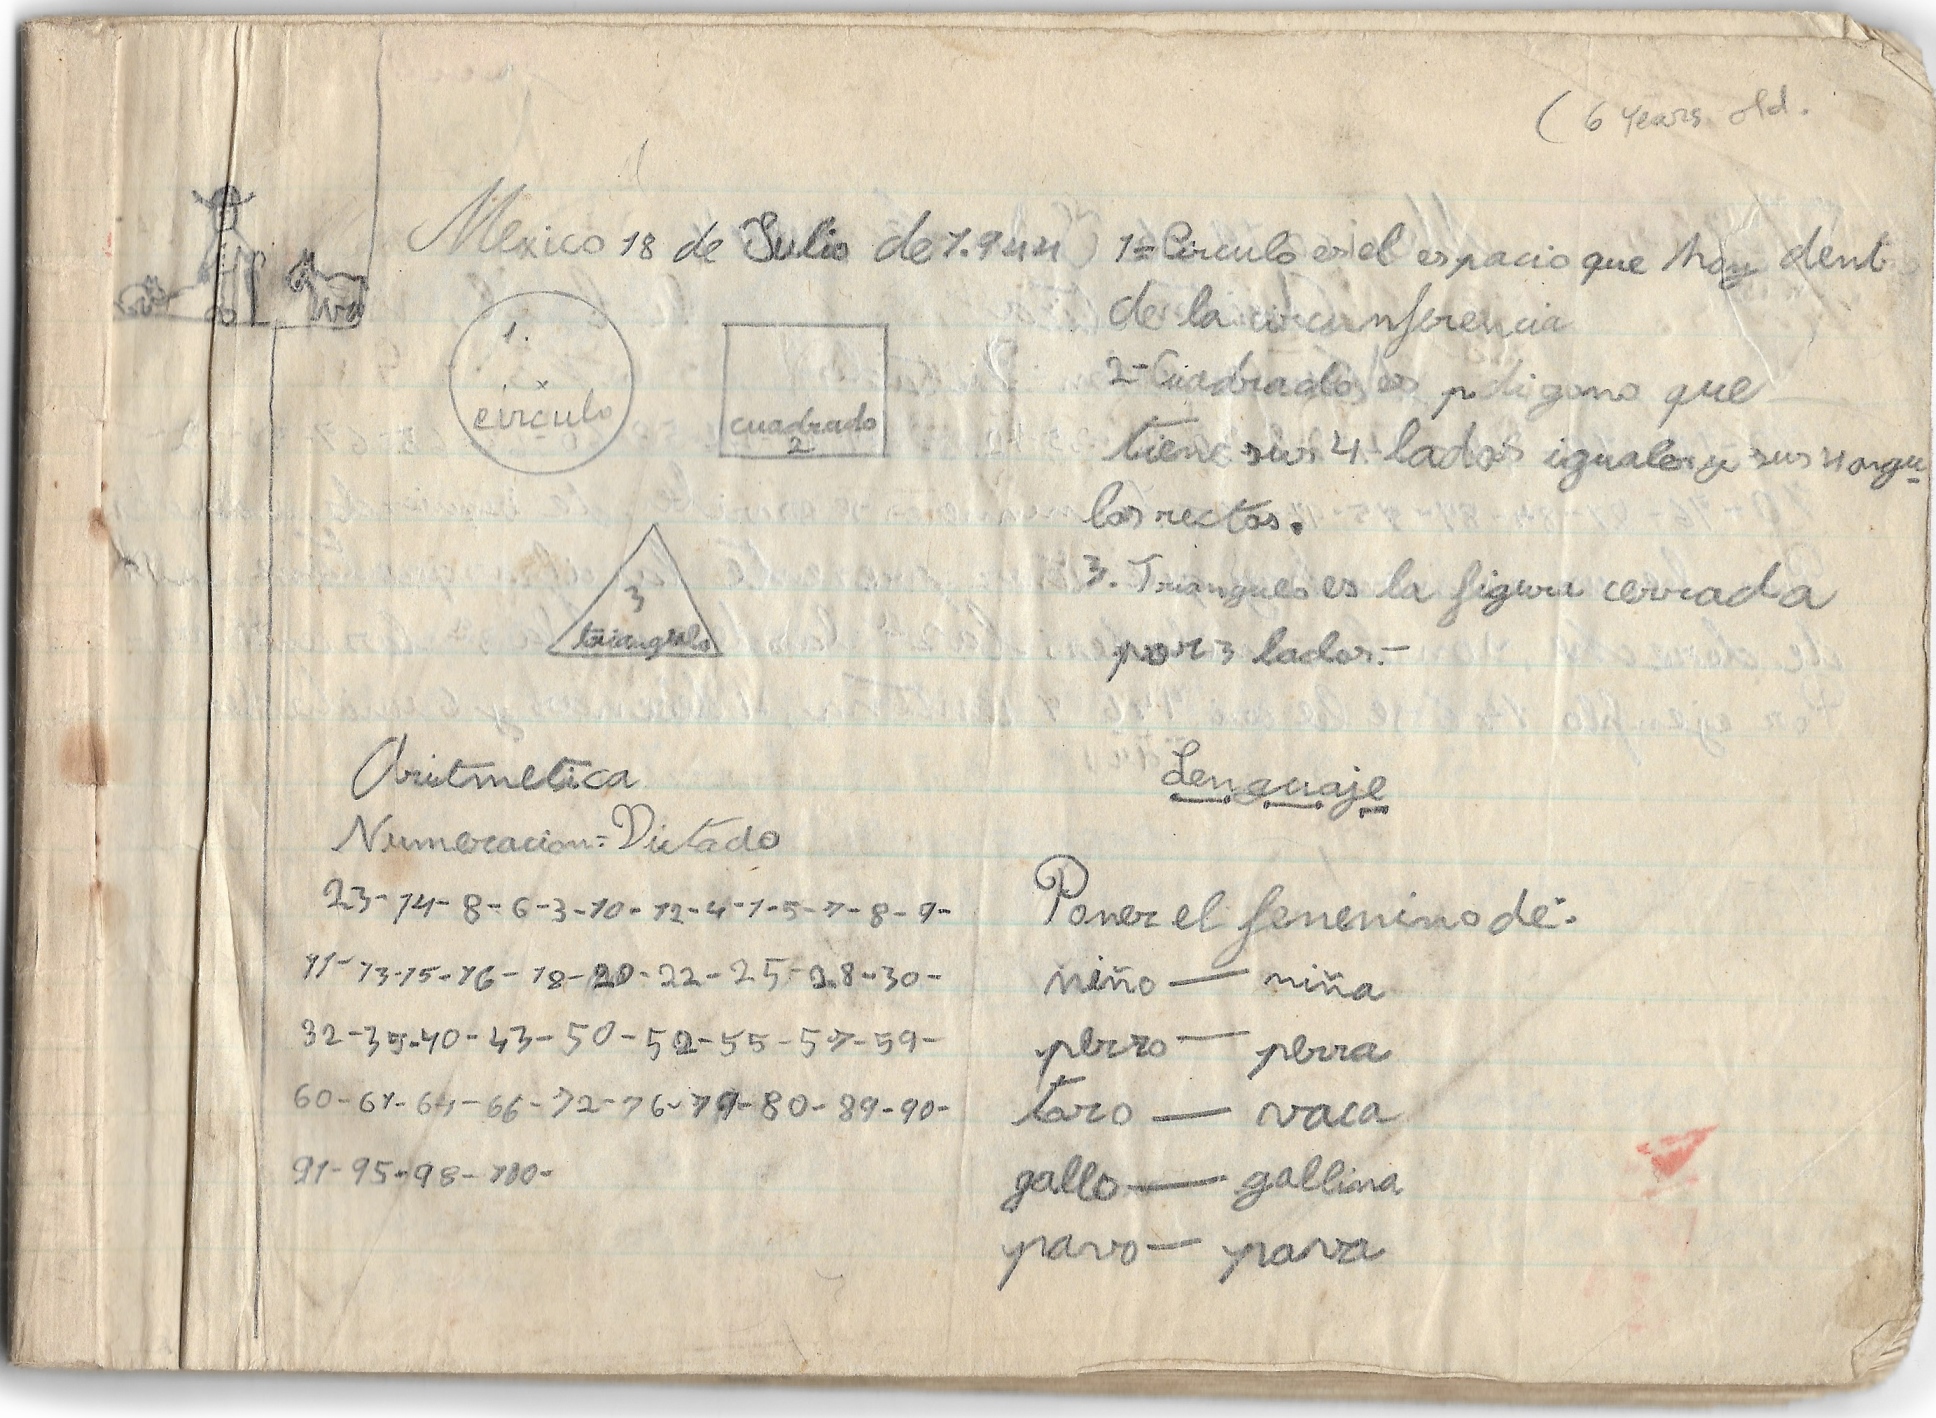 ( 6 Years old.
Mexico 18 de Julio de 1.944
1.
circulo
cuadrado
2
3
triangulo
1= Circulo es el espacio que hay dent
de la circunferencia
2- Cuadrado es poligono que
tiene sus 4 lados iguales y sus 4 angu-
los rectos.
3. Triangulo es la figura cerrada
por 3 lados.-
Aritmetica
Numeracion = Dictado
23-14-8-6-3-10-12-4-1-5-7-8-9-
11-13-15-16-18-20-22-25-28-30-
32-35-40-43-50-52-55-57-59-
60-61-64-66-72-76-79-80-89-90-
91-95-98-100-
Lenguaje
Poner el fenenino de:.
niño — niña
perro — perra
toro — vaca
gallo — gallina
pavo — pava